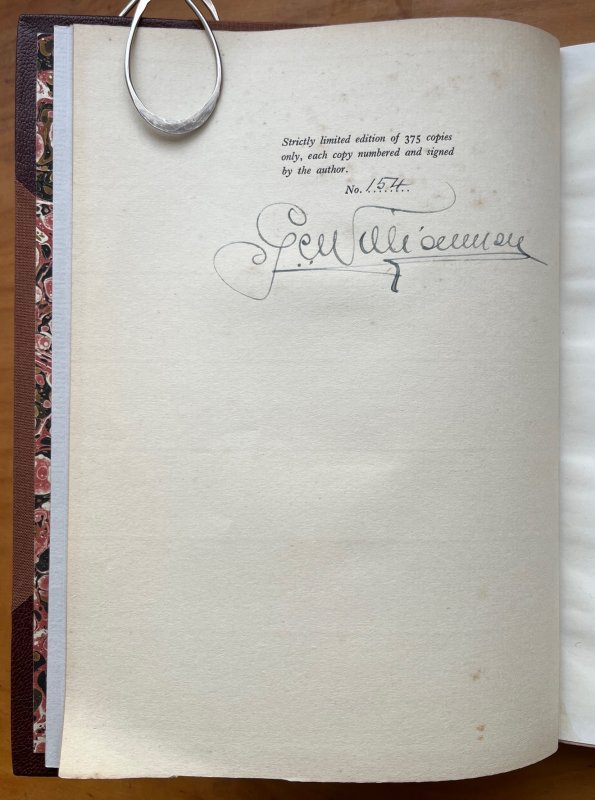 Strictly limited edition of 375 copies
only, each copy numbered and signed
by the author.
No. 154
G.C. Williamson